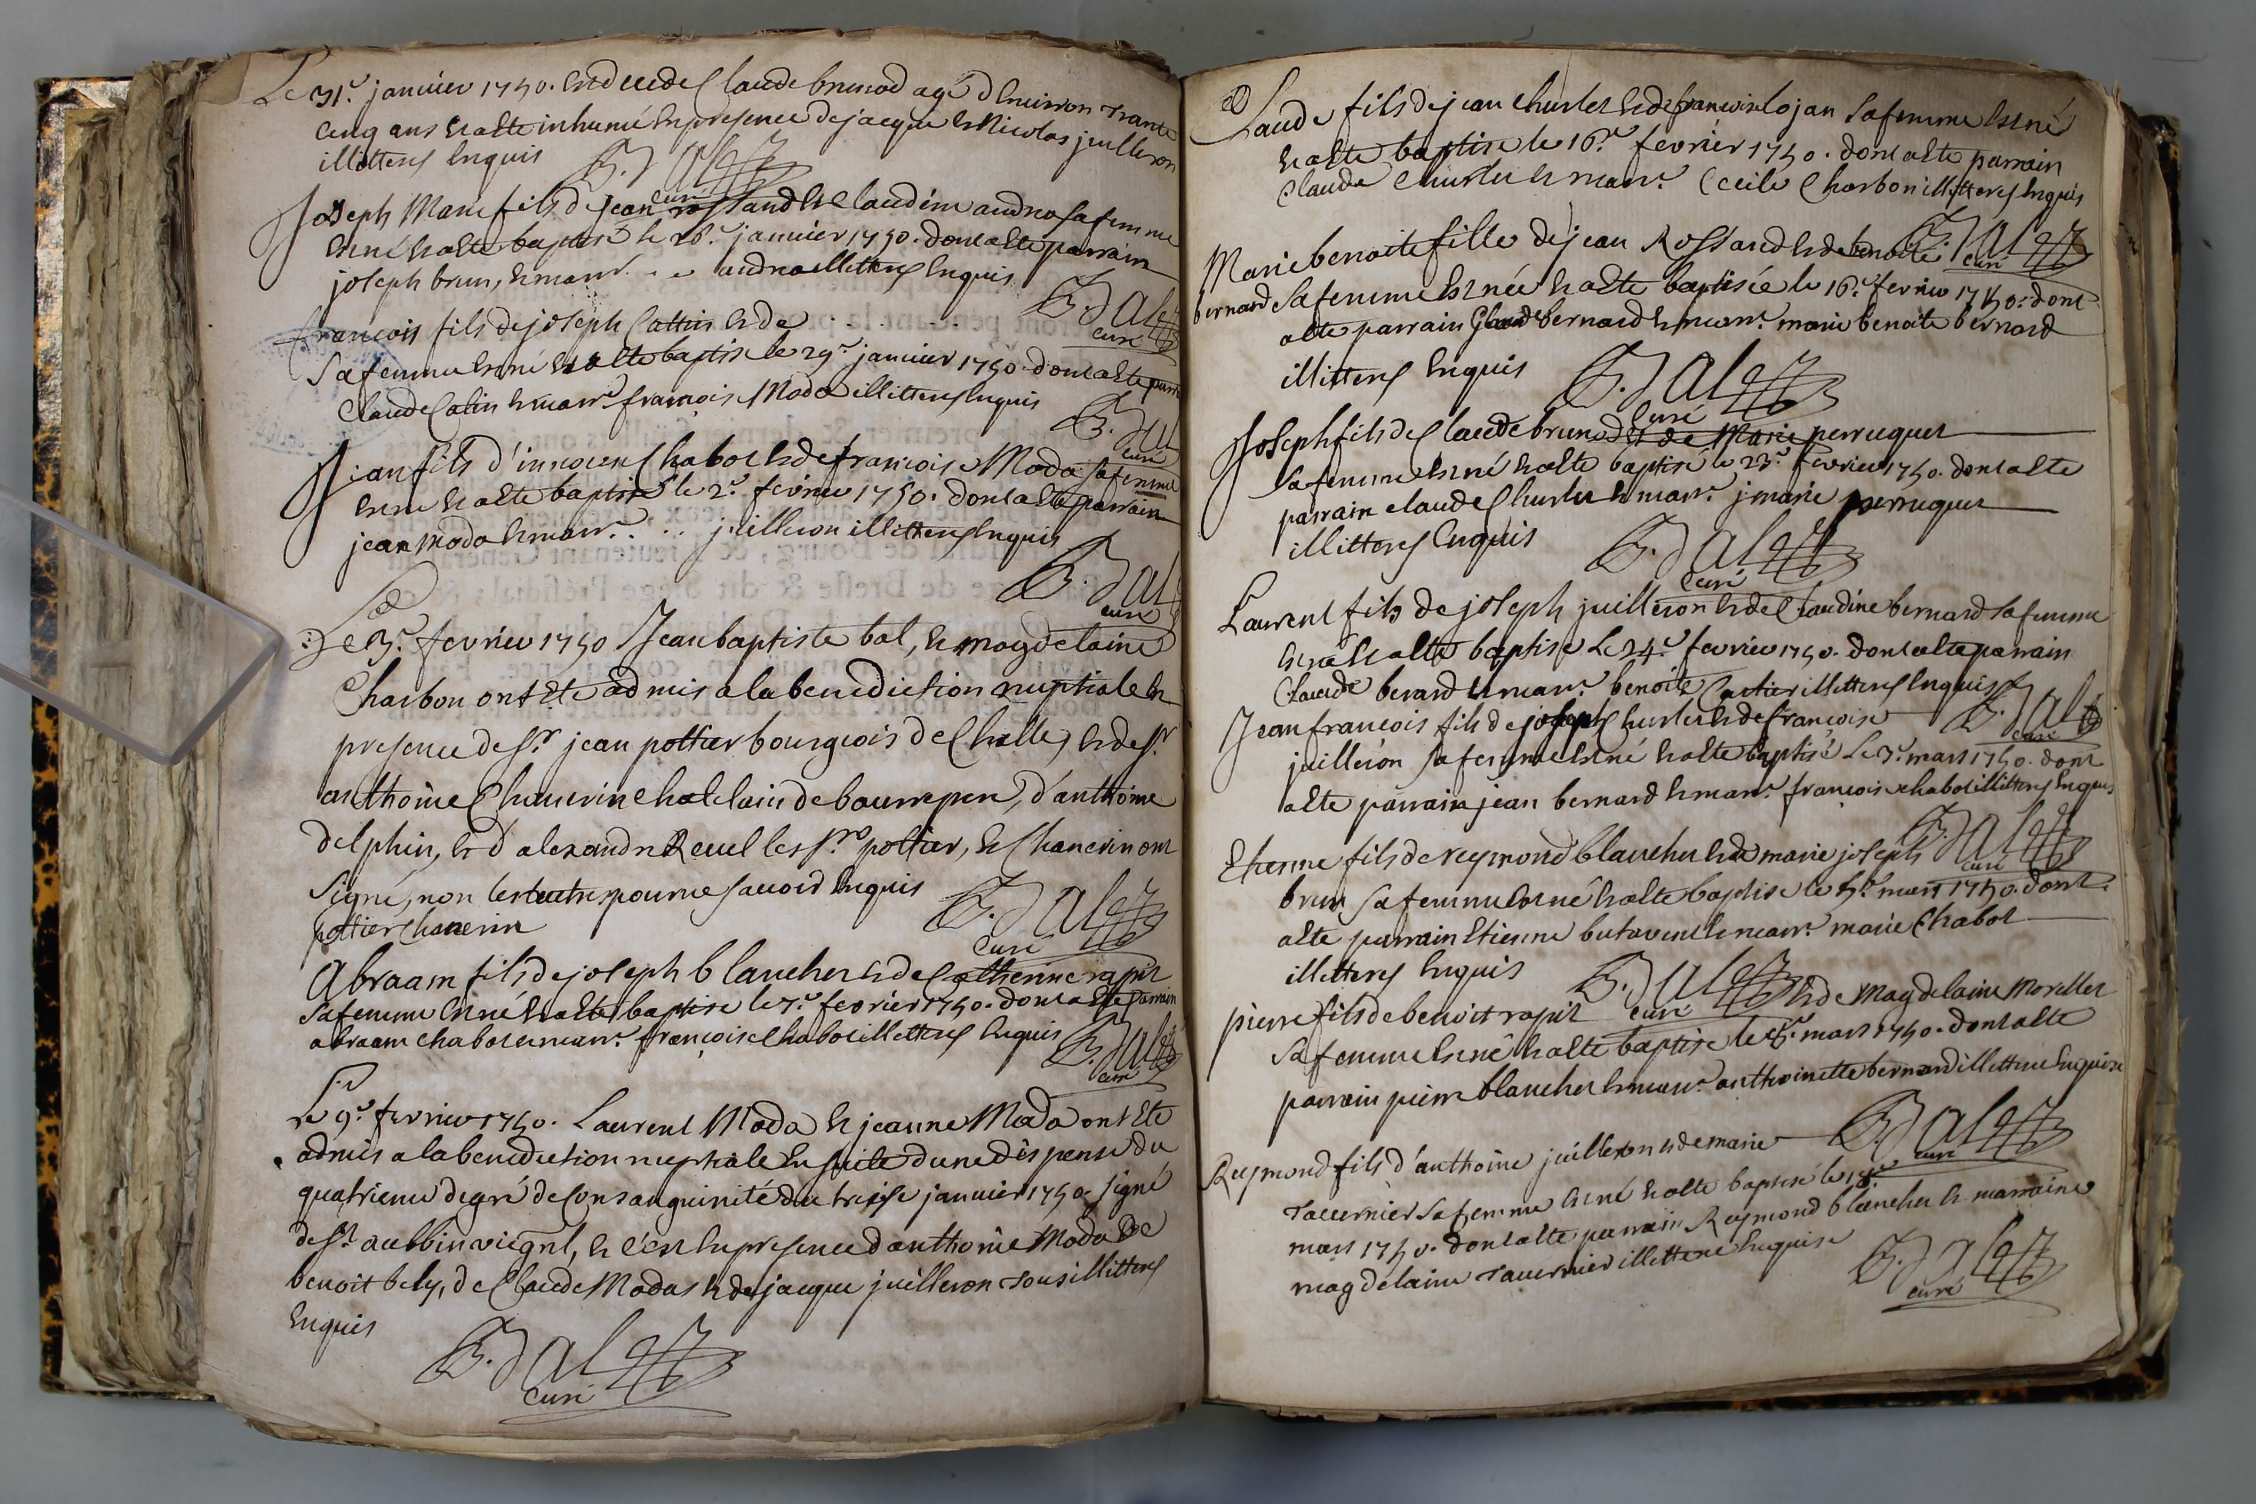 Le 31.e janvier 1750. est decede Claude brunod agé d'environ trante
cinq ans et a ete inhumé en presence de jacque et Nicolas juilleron
illitteres enquis B. Dalez
curé
Joseph Marie fils de jean rossand et de claudine andrea sa femme
est né et a ete baptisé le 26.e janvier 1750. dont a ete parrain
joseph brun, et marr.e . . andrea illitteres enquis
B. Dalez
curé
francois fils de joseph Cattin et de . . . .
sa femme est né et a ete baptise le 29.e janvier 1750. dont a ete parr
Claude Catin et marr.e francoise Moda illitteres enquis
B. Dal
curé
Jean fils d'innocent Chabot et de francoise Moda sa femme
est né et a ete baptisé le 2.e fevrier 1750. dont a ete parrain
jean Moda et marr.e . . . juilleron illitteres enquis
B. Dal
curé
Le 3.e fevrier 1750 Jean baptiste bal, et magdelaine
Charbon ont ete admis a la benediction nuptiale en
presence de s.r jean pottier bourgeois de Challes, et de s.r
anthoine Chanerin chatelain de baurepen, d'anthoine
delphin, et d'alexandre Revel les s.rs pottier, et Chanerin ont
signé, non les autres pour ne savoir enquis
pottier Chanerin B. Dalez
curé
Abraam fils de joseph blancher et de Catherine rapit
sa femme est né et a ete baptise le 7.e fevrier 1750. dont a ete parrain
abraam chabot et marr.e francoise Chabot illitteres enquis
B. Dalez
curé
Le 9.e fevrier 1750. Laurent Moda et jeanne Moda ont ete
admis a la benediction nuptiale en suite d'une dispense du
quatrieme degré de Consanguinité du treise janvier 1750. signé
de s.t aubbin vic gnl, et c'est en presence d'anthoine Moda de
benoit bely, de Claude Modas et de jacque juilleron tous illitteres
enquis
B. Dalez
curé
Claude fils de jean churlet et de francoise lojan sa femme est né
et a ete baptise le 16.e fevrier 1750. dont a ete parrain
Claude Churlet et marr.e Cecile Charbon illitteres enquis
B. Dalez
curé
Marie benoite fille de jean Rossand et de benoite
bernard sa femme est née et a ete baptisée le 16.e fevrier 1750. dont
a ete parrain Claude bernard et marr.e marie benoite bernard
illitteres enquis B. Dalez
curé
Joseph fils de Claude brunod et de Marie perruquet
sa femme est né et a ete baptisé le 23.e fevrier 1750. dont a ete
parrain claude Churlet et marr.e jmarie perruquet
illitteres enquis B. Dalez
curé
Laurent fils de joseph juilleron et de Claudine bernard sa femme
est né et a ete baptise Le 24.e fevrier 1750. dont a ete parrain
Claude berard et marr.e benoite Cartier illitteres enquis
B. Dalez
curé
Jean francois fils de joseph Churlet et de francoise
juilleron sa femme est né et a ete baptisé Le 3.e mars 1750. dont
a ete parrain jean bernard et marr.e francoise chabot illitteres enquis
B. Dalez
curé
Etienne fils de reymond blancher et de marie joseph
brun sa femme est né et a ete baptise le 5.e mars 1750. dont
a ete parrain Etienne butavent et marr.e marie Chabot
illitteres enquis B. Dalez
curé
pierre fils de benoit rapit et de Magdelaine Morellet
sa femme est né et a ete baptise le 8.e mars 1750. dont a ete
parrain pierre blancher et marr.e anthoinette bernard illitteree enquise
B. Dalez
curé
Reymond fils d'anthoine juilleron et de marie
tavernier sa femme est né et a ete baptisé le 18.e
mars 1750. dont a ete parrain Reymond blancher et marraine
magdelaine tavernier illitteree enquise
B. Dalez
curé